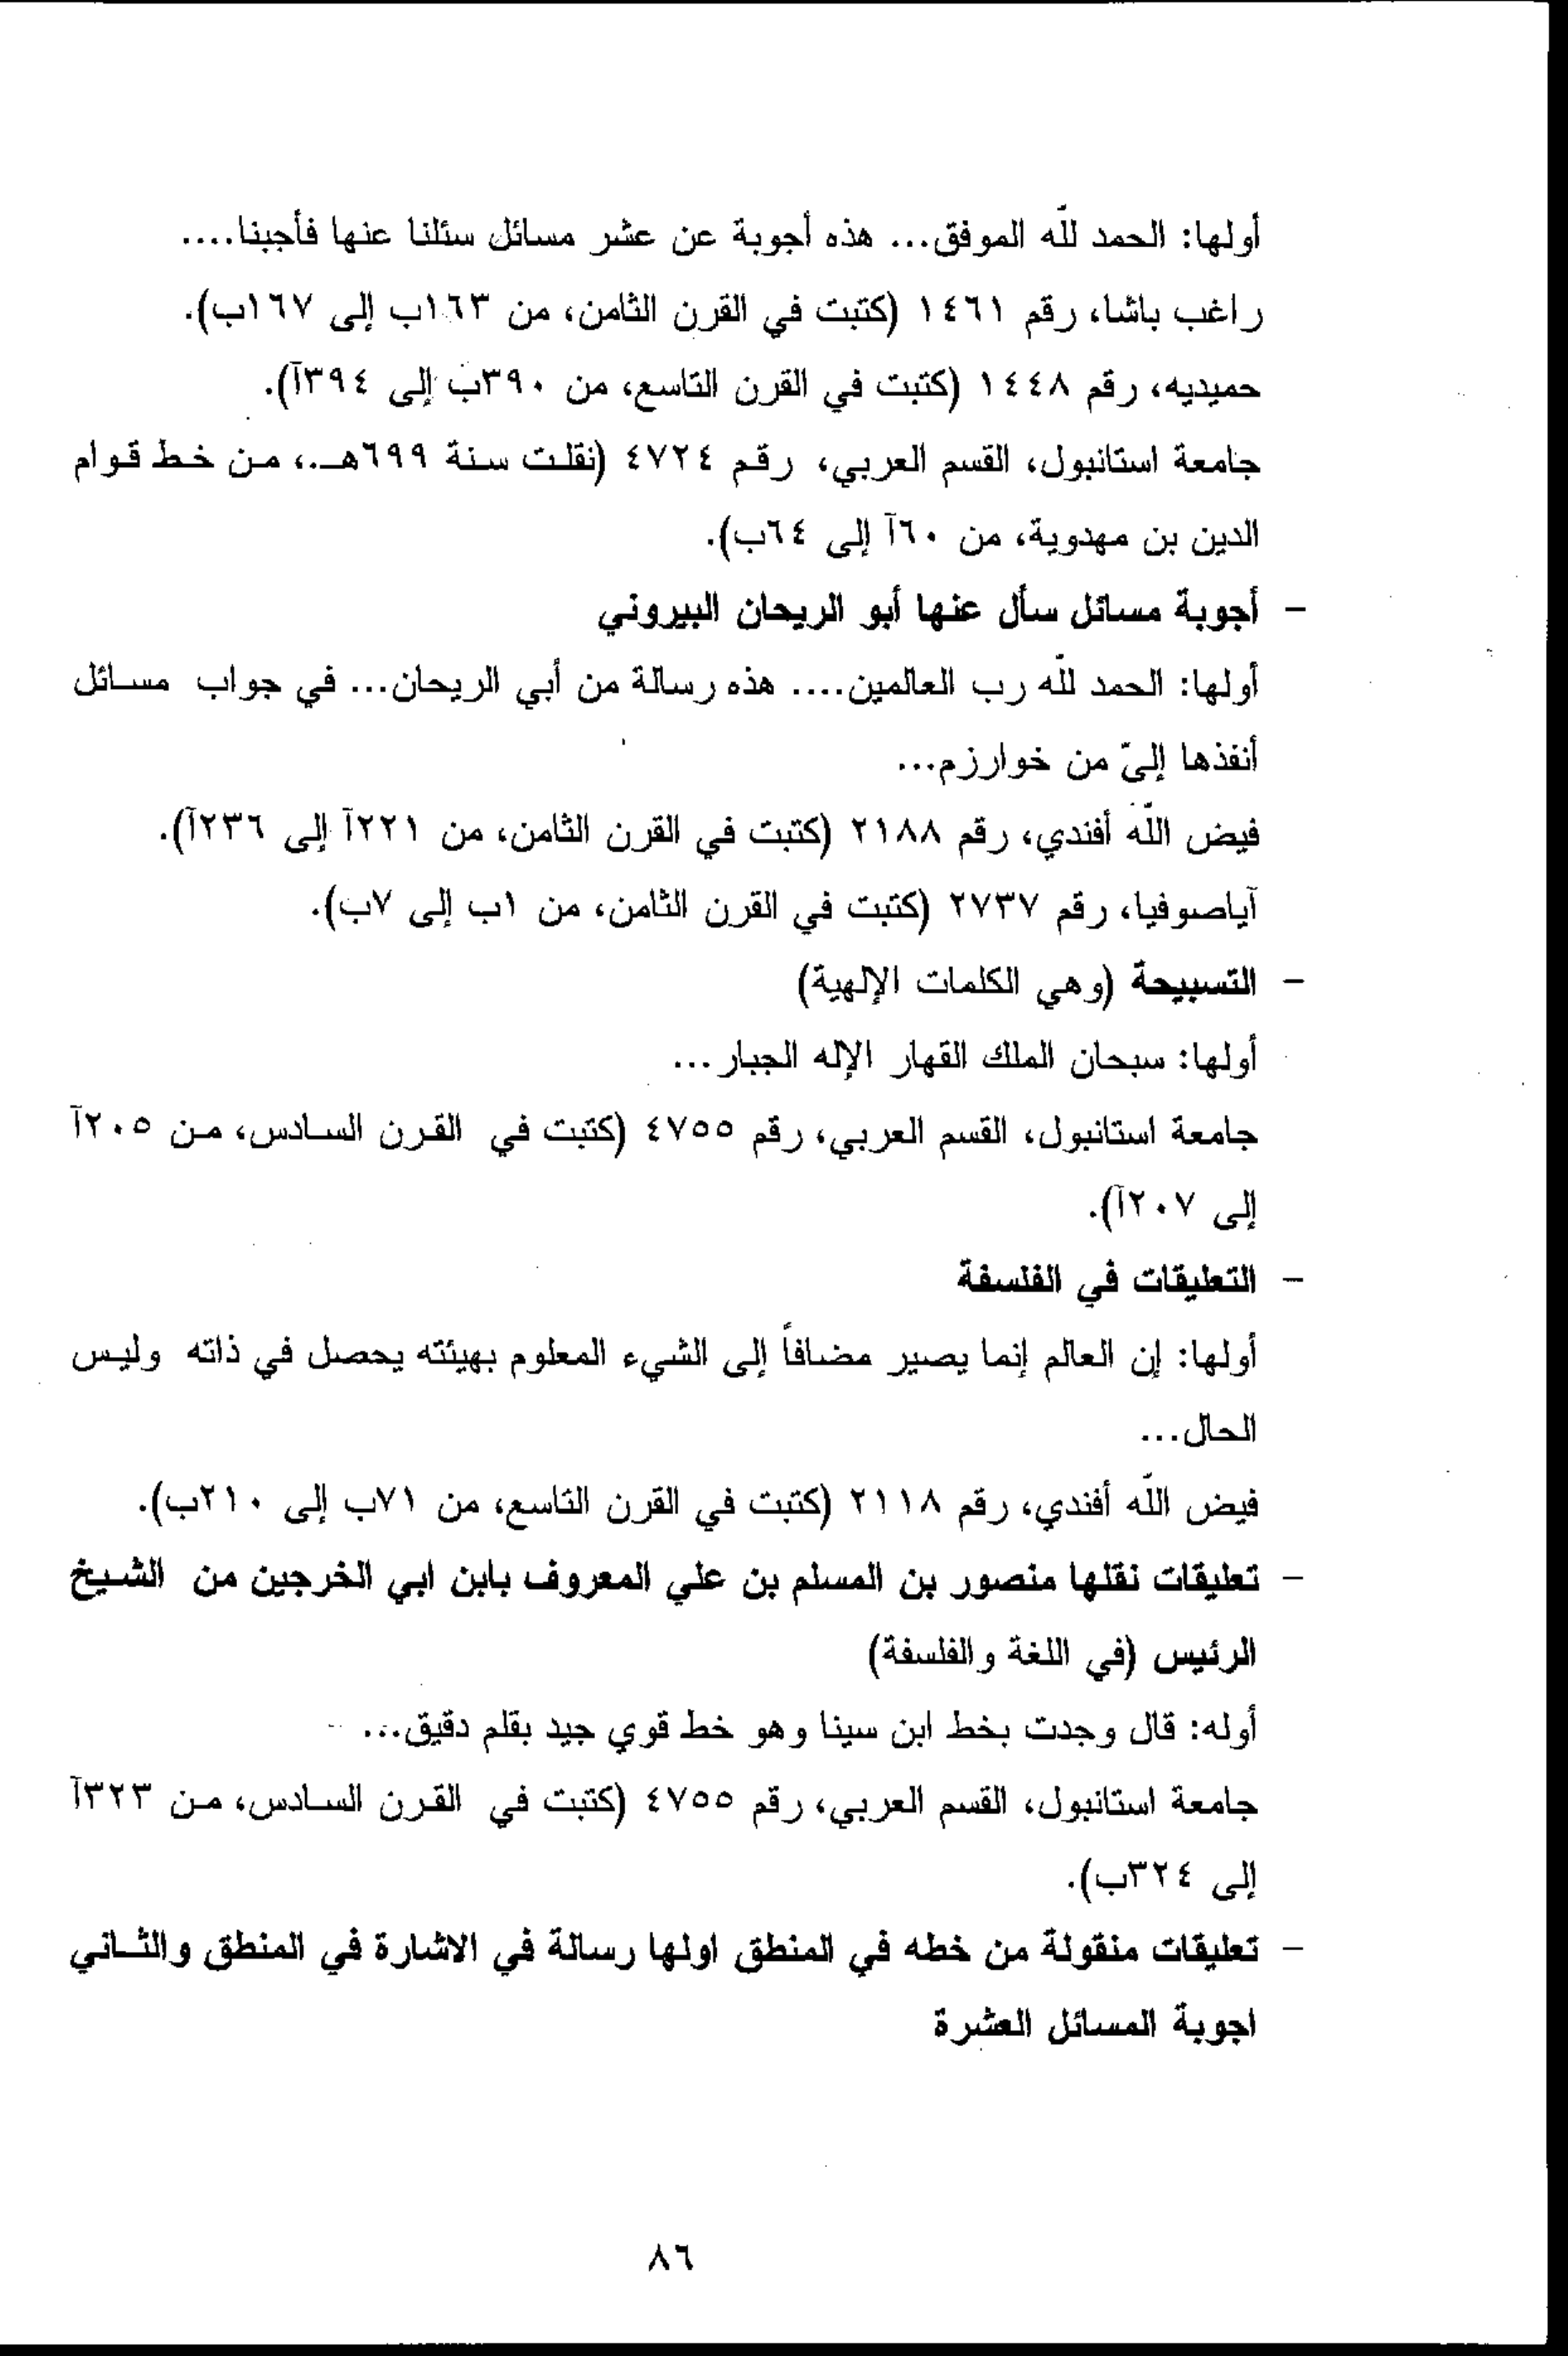 أولها: الحمد للّه الموفق... هذه أجوبة عن عشر مسائل سئلنا عنها فأجبنا....
راغب باشا، رقم ١٤٦١ (كتبت في القرن الثامن، من ١٦٣ب إلى ١٦٧ب).
حميديه، رقم ١٤٤٨ (كتبت في القرن التاسع، من ٣٩٠ب إلى ٣٩٤آ).
جامعة استانبول، القسم العربي، رقم ٤٧٢٤ (نقلت سنة ٦٩٩هـ.، من خط قوام
الدين بن مهدوية، من ٦٠آ إلى ٦٤ب).
- أجوبة مسائل سأل عنها أبو الريحان البيروني
أولها: الحمد للّه رب العالمين.... هذه رسالة من أبي الريحان... في جواب مسائل
أنفذها إليّ من خوارزم...
فيض اللّه أفندي، رقم ٢١٨٨ (كتبت في القرن الثامن، من ٢٢١آ إلى ٢٣٦آ).
آياصوفيا، رقم ٢٧٣٧ (كتبت في القرن الثامن، من ١ب إلى ٧ب).
- التسبيحة (وهي الكلمات الإلهية)
أولها: سبحان الملك القهار الإله الجبار...
جامعة استانبول، القسم العربي، رقم ٤٧٥٥ (كتبت في القرن السادس، من ٢٠٥آ
إلى ٢٠٧آ).
- التعليقات في الفلسفة
أولها: إن العالم إنما يصير مضافاً إلى الشيء المعلوم بهيئته يحصل في ذاته وليس
الحال...
فيض اللّه أفندي، رقم ٢١١٨ (كتبت في القرن التاسع، من ٧١ب إلى ٢١٠ب).
- تعليقات نقلها منصور بن المسلم بن علي المعروف بابن ابي الخرجين من الشيخ
الرئيس (في اللغة والفلسفة)
أوله: قال وجدت بخط ابن سينا وهو خط قوي جيد بقلم دقيق...
جامعة استانبول، القسم العربي، رقم ٤٧٥٥ (كتبت في القرن السادس، من ٣٢٣آ
إلى ٣٢٤ب).
- تعليقات منقولة من خطه في المنطق اولها رسالة في الاشارة في المنطق والثاني
اجوبة المسائل العشرة
٨٦